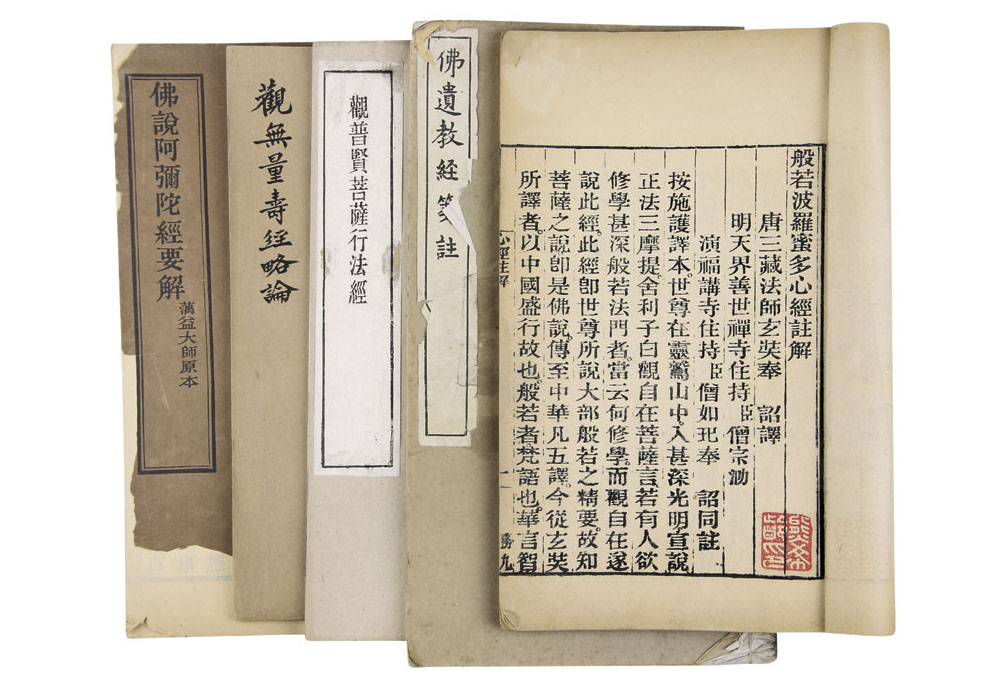 般若波羅蜜多心經註解
唐三藏法師玄奘奉 詔譯
明天界善世禪寺住持臣僧宗泐
演福講寺住持臣僧如玘奉 詔同註
按施護譯本。世尊在靈鷲山中。入甚深光明。宣說
正法三摩提。舍利子白觀自在菩薩言。若有人欲
修學甚深般若法門者。當云何修學。而觀自在遂
說此經。此經即世尊所說大部般若之精要。故知
菩薩之說即是佛說。傳至中華凡五譯。今從玄奘
所譯者。以中國盛行故也。般若者。梵語也。華言智
心經註解
一
務九
佛遺教經箋註
觀普賢菩薩行法經
觀無量壽經略論
佛說阿彌陀經要解
蕅益大師原本